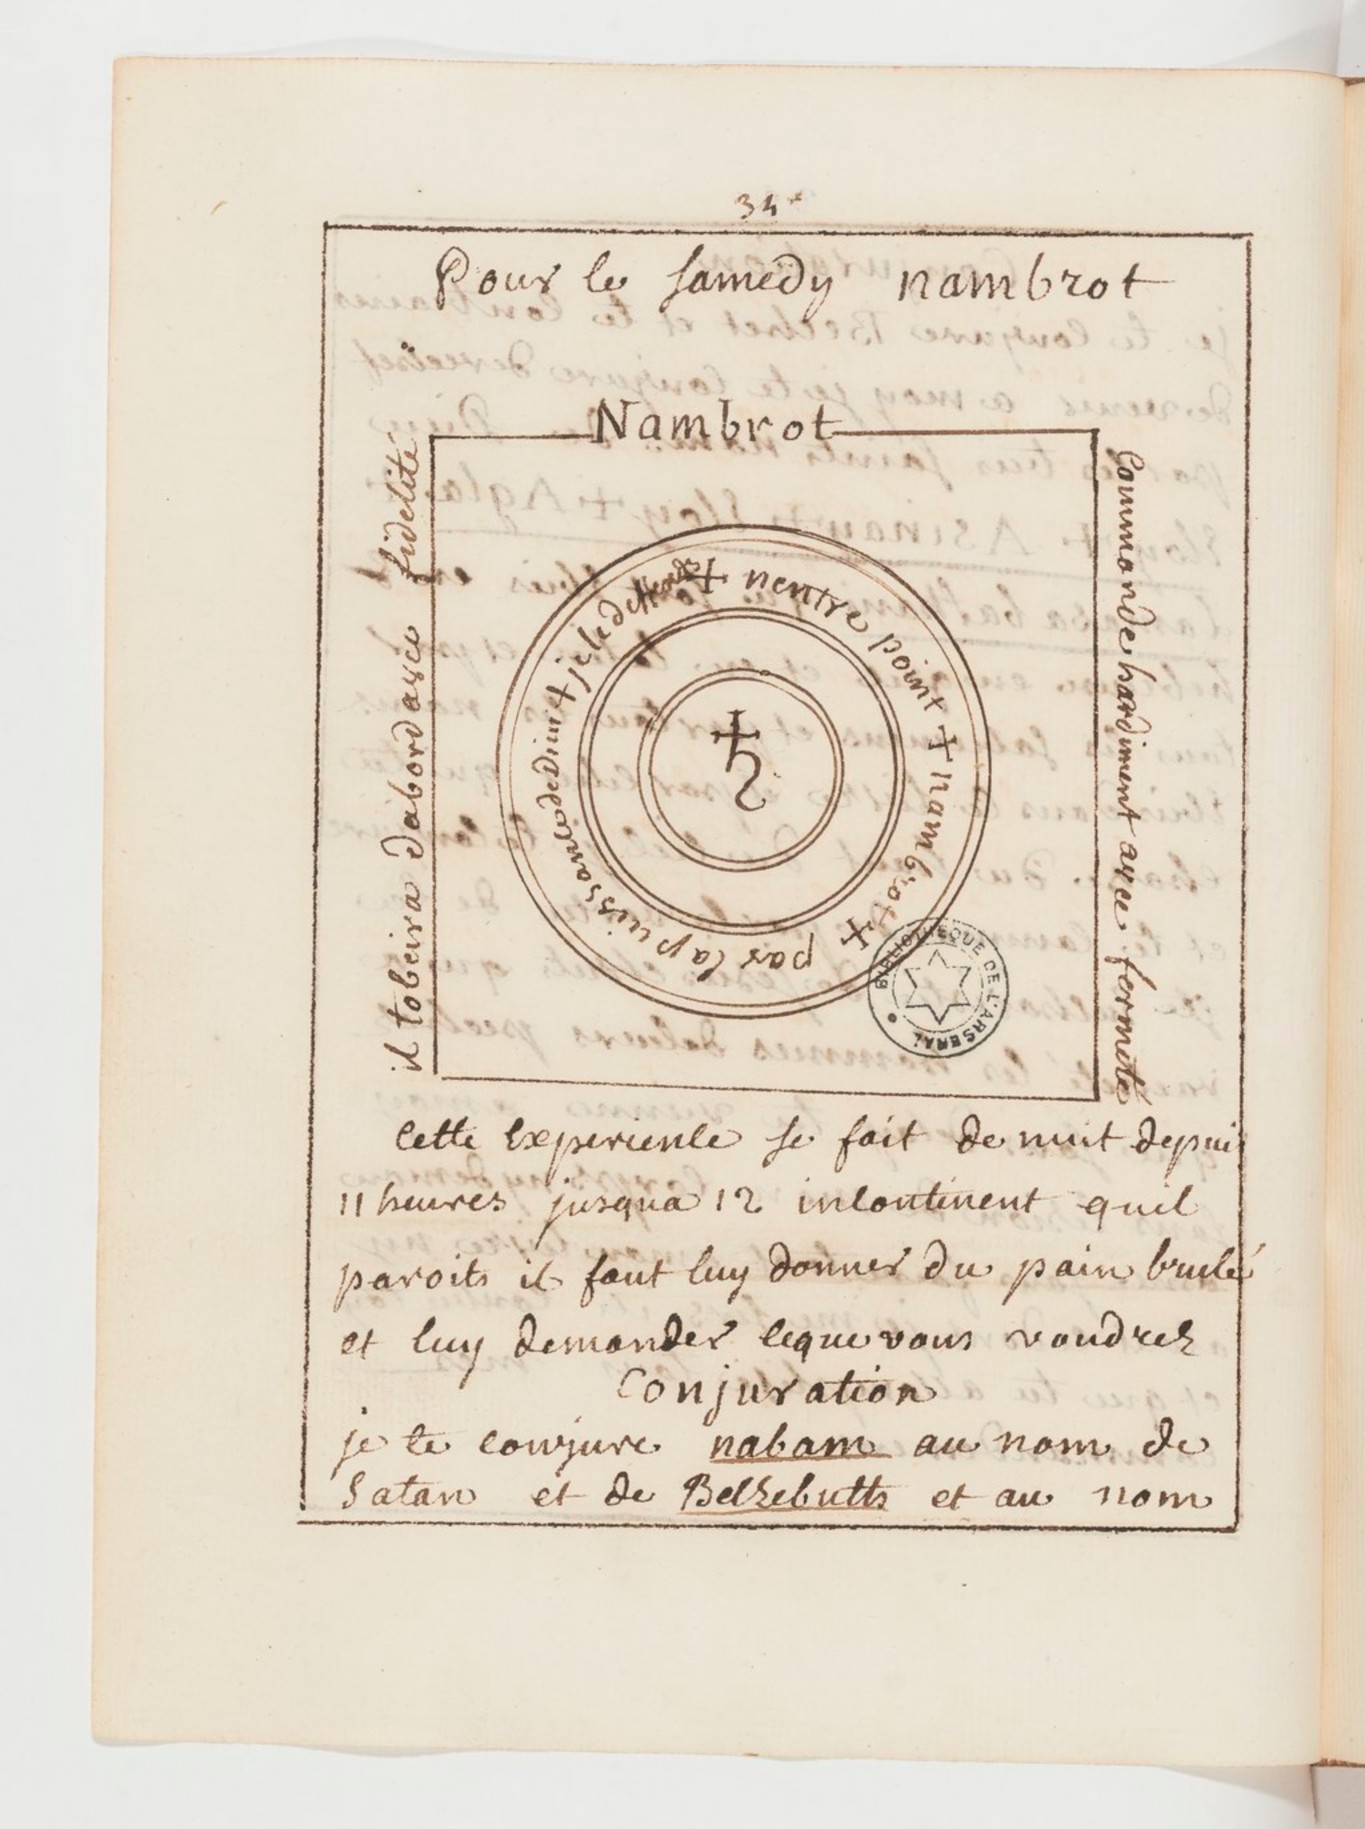 34
Pour le samedy nambrot
Nambrot
il tobeira dabord avec fidelité
Commande hardiment avec fermeté
+ nentre point + nambrot + par la puissance de Dieu + je le deffends
♄
BIBLIOTHEQUE DE L'ARSENAL
Cette Experience se fait de nuit depuis
11 heures jusqua 12 incontinent quil
paroits il faut luy donner du pain brulé
et luy demander ceque vous voudrez
Conjuration
je te conjure nabam au nom de
Satan et de Belzebutts et au nom